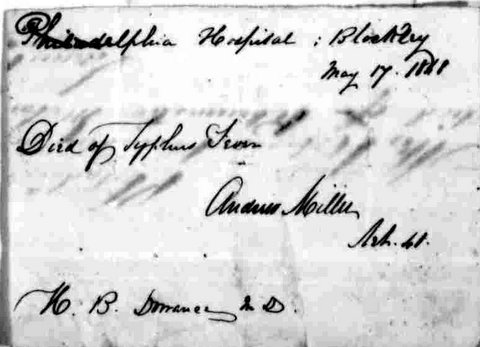 Philadelphia Hospital : Blockley
May 17. 1848
Died of Typhus Fever
Andrew Miller
H. B. Dorrance M D.